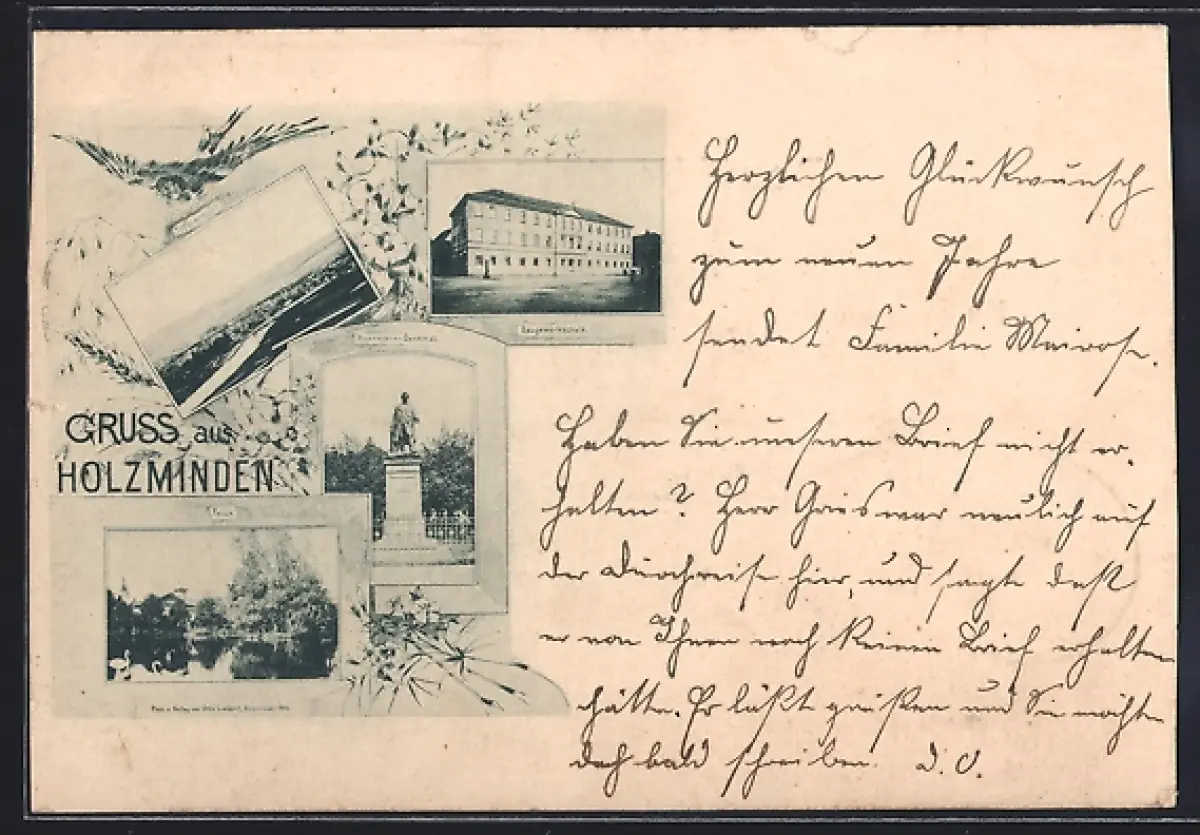 Herzlichen Glückwunsch
zum neuen Jahre
sendet Familie Mairose.
Baugewerkschule.
Denkmal
GRUSS aus
HOLZMINDEN
Haben Sie unseren Brief nicht er-
halten? Herr Gries war neulich auf
der Durchreise hier, und sagte daß
er von Ihnen noch keinen Brief erhalten
hätte. Er läßt grüßen und Sie möchten
doch bald schreiben. D. O.